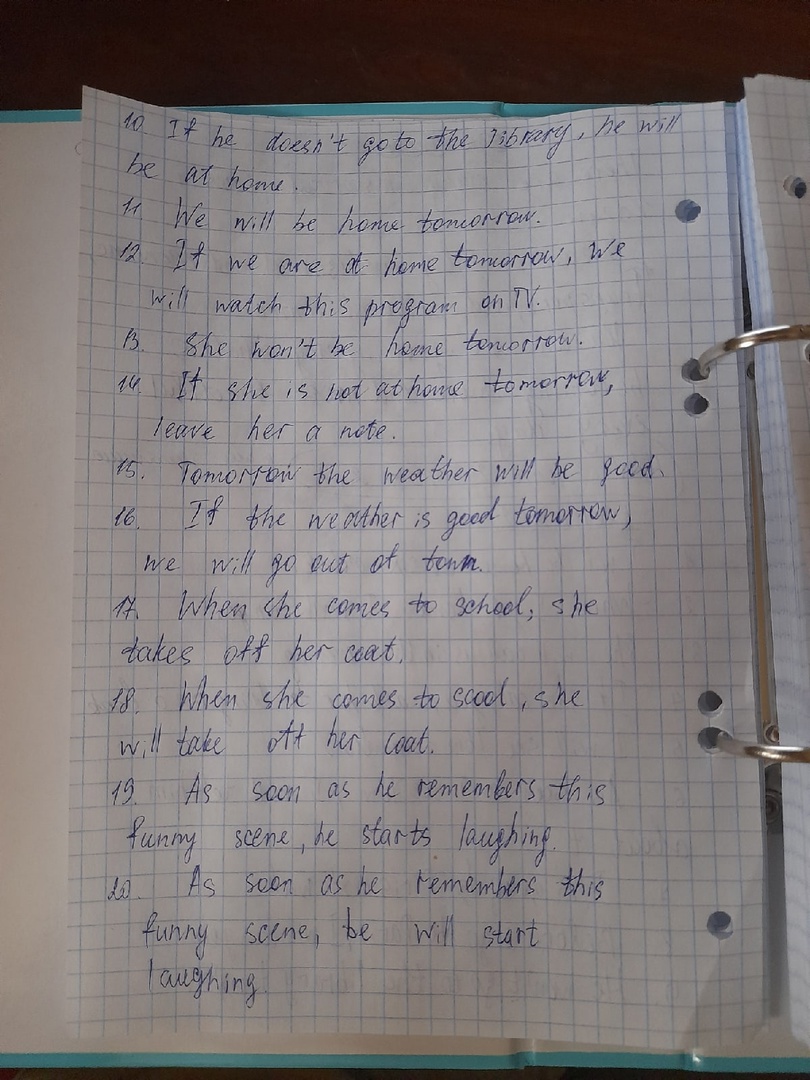 10. If he doesn't go to the library, he will
be at home.
11. We will be home tomorrow.
12. If we are at home tomorrow, we
will watch this program on TV.
13. She won't be home tomorrow.
14. If she is not at home tomorrow,
leave her a note.
15. Tomorrow the weather will be good.
16. If the weather is good tomorrow,
we will go out of town.
17. When she comes to school, she
takes off her coat.
18. When she comes to scool, she
will take off her coat.
19. As soon as he remembers this
funny scene, he starts laughing.
20. As soon as he remembers this
funny scene, be will start
laughing.